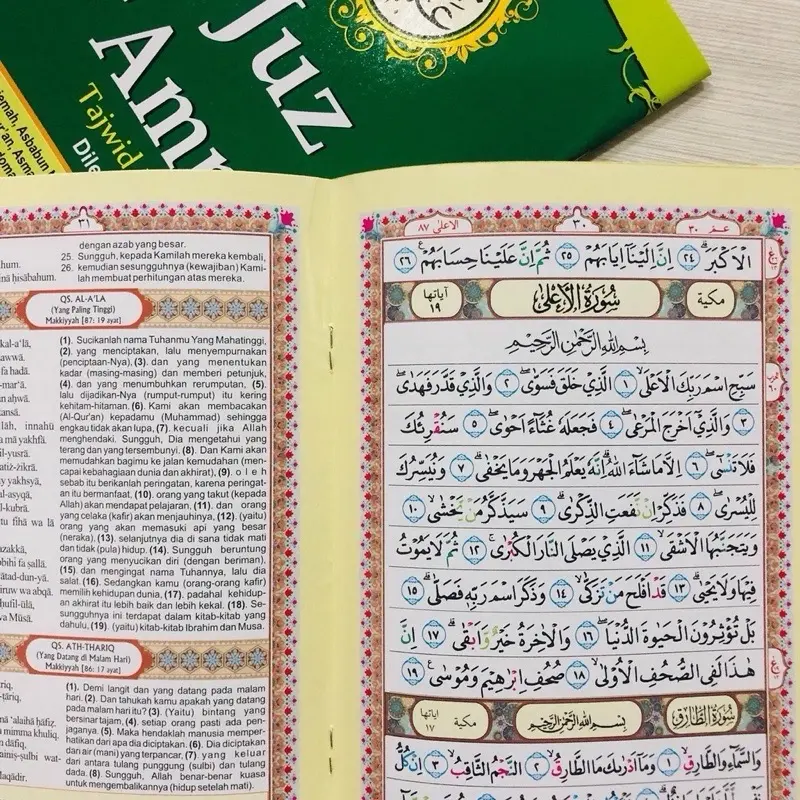 Juz
Tajwid
٣١
hum.
nā ḥisābahum.
dengan azab yang besar.
25. Sungguh, kepada Kamilah mereka kembali,
26. kemudian sesungguhnya (kewajiban) Kami-
lah membuat perhitungan atas mereka.
QS. AL-A'LA
(Yang Paling Tinggi)
Makkiyyah [87: 19 ayat]
(1). Sucikanlah nama Tuhanmu Yang Mahatinggi,
(2). yang menciptakan, lalu menyempurnakan
(penciptaan-Nya), (3). dan yang menentukan
kadar (masing-masing) dan memberi petunjuk,
(4). dan yang menumbuhkan rerumputan, (5).
lalu dijadikan-Nya (rumput-rumput) itu kering
kehitam-hitaman. (6). Kami akan membacakan
(Al-Qur'an) kepadamu (Muhammad) sehingga
engkau tidak akan lupa, (7). kecuali jika Allah
menghendaki. Sungguh, Dia mengetahui yang
terang dan yang tersembunyi. (8). Dan Kami akan
memudahkan bagimu ke jalan kemudahan (men-
capai kebahagiaan dunia dan akhirat), (9). o l e h
sebab itu berikanlah peringatan, karena peringat-
an itu bermanfaat, (10). orang yang takut (kepada
Allah) akan mendapat pelajaran, (11). dan orang
yang celaka (kafir) akan menjauhinya, (12). (yaitu)
orang yang akan memasuki api yang besar
(neraka), (13). selanjutnya dia di sana tidak mati
dan tidak (pula) hidup. (14). Sungguh beruntung
orang yang menyucikan diri (dengan beriman),
(15). dan mengingat nama Tuhannya, lalu dia
salat. (16). Sedangkan kamu (orang-orang kafir)
memilih kehidupan dunia, (17). padahal kehidup-
an akhirat itu lebih baik dan lebih kekal. (18). Se-
sungguhnya ini terdapat dalam kitab-kitab yang
dahulu, (19). (yaitu) kitab-kitab Ibrahim dan Musa.
QS. ATH-THARIQ
(Yang Datang di Malam Hari)
Makkiyyah [86: 17 ayat]
(1). Demi langit dan yang datang pada malam
hari. (2). Dan tahukah kamu apakah yang datang
pada malam hari itu? (3). (Yaitu) bintang yang
bersinar tajam, (4). setiap orang pasti ada pen-
jaganya. (5). Maka hendaklah manusia memper-
hatikan dari apa dia diciptakan. (6). Dia diciptakan
dari air (mani) yang terpancar, (7) yang keluar
dari antara tulang punggung (sulbi) dan tulang
dada. (8) Sungguh, Allah benar-benar kuasa
untuk mengembalikannya (hidup setelah mati).
الاعلى ٨٧
٣٠
عم ٣٠
الْاَكْبَرَۗ ٢٤ اِنَّ اِلَيْنَآ اِيَابَهُمْ ٢٥ ثُمَّ اِنَّ عَلَيْنَا حِسَابَهُمْ ٢٦
مكية سُوْرَةُ الْاَعْلٰى اٰياتها ١٩
بِسْمِ اللّٰهِ الرَّحْمٰنِ الرَّحِيْمِ
سَبِّحِ اسْمَ رَبِّكَ الْاَعْلَىۙ ١ الَّذِيْ خَلَقَ فَسَوّٰىۖ ٢ وَالَّذِيْ قَدَّرَ فَهَدٰىۖ
٣ وَالَّذِيْٓ اَخْرَجَ الْمَرْعٰىۖ ٤ فَجَعَلَهٗ غُثَاۤءً اَحْوٰىۖ ٥ سَنُقْرِئُكَ
فَلَا تَنْسٰىۖ ٦ اِلَّا مَا شَاۤءَ اللّٰهُۗ اِنَّهٗ يَعْلَمُ الْجَهْرَ وَمَا يَخْفٰىۗ ٧ وَنُيَسِّرُكَ
لِلْيُسْرٰىۖ ٨ فَذَكِّرْ اِنْ نَّفَعَتِ الذِّكْرٰىۗ ٩ سَيَذَّكَّرُ مَنْ يَّخْشٰىۙ ١٠
وَيَتَجَنَّبُهَا الْاَشْقَىۙ ١١ الَّذِيْ يَصْلَى النَّارَ الْكُبْرٰىۚ ١٢ ثُمَّ لَا يَمُوْتُ
فِيْهَا وَلَا يَحْيٰىۗ ١٣ قَدْ اَفْلَحَ مَنْ تَزَكّٰىۙ ١٤ وَذَكَرَ اسْمَ رَبِّهٖ فَصَلّٰىۗ ١٥
بَلْ تُؤْثِرُوْنَ الْحَيٰوةَ الدُّنْيَاۖ ١٦ وَالْاٰخِرَةُ خَيْرٌ وَّاَبْقٰىۗ ١٧ اِنَّ
هٰذَا لَفِى الصُّحُفِ الْاُوْلٰىۙ ١٨ صُحُفِ اِبْرٰهِيْمَ وَمُوْسٰى ١٩
سُوْرَةُ الطَّارِقِ بِسْمِ اللّٰهِ الرَّحْمٰنِ الرَّحِيْمِ مكية اٰياتها ١٧
وَالسَّمَاۤءِ وَالطَّارِقِۙ ١ وَمَآ اَدْرٰىكَ مَا الطَّارِقُۙ ٢ النَّجْمُ الثَّاقِبُۙ ٣ اِنْ كُلُّ